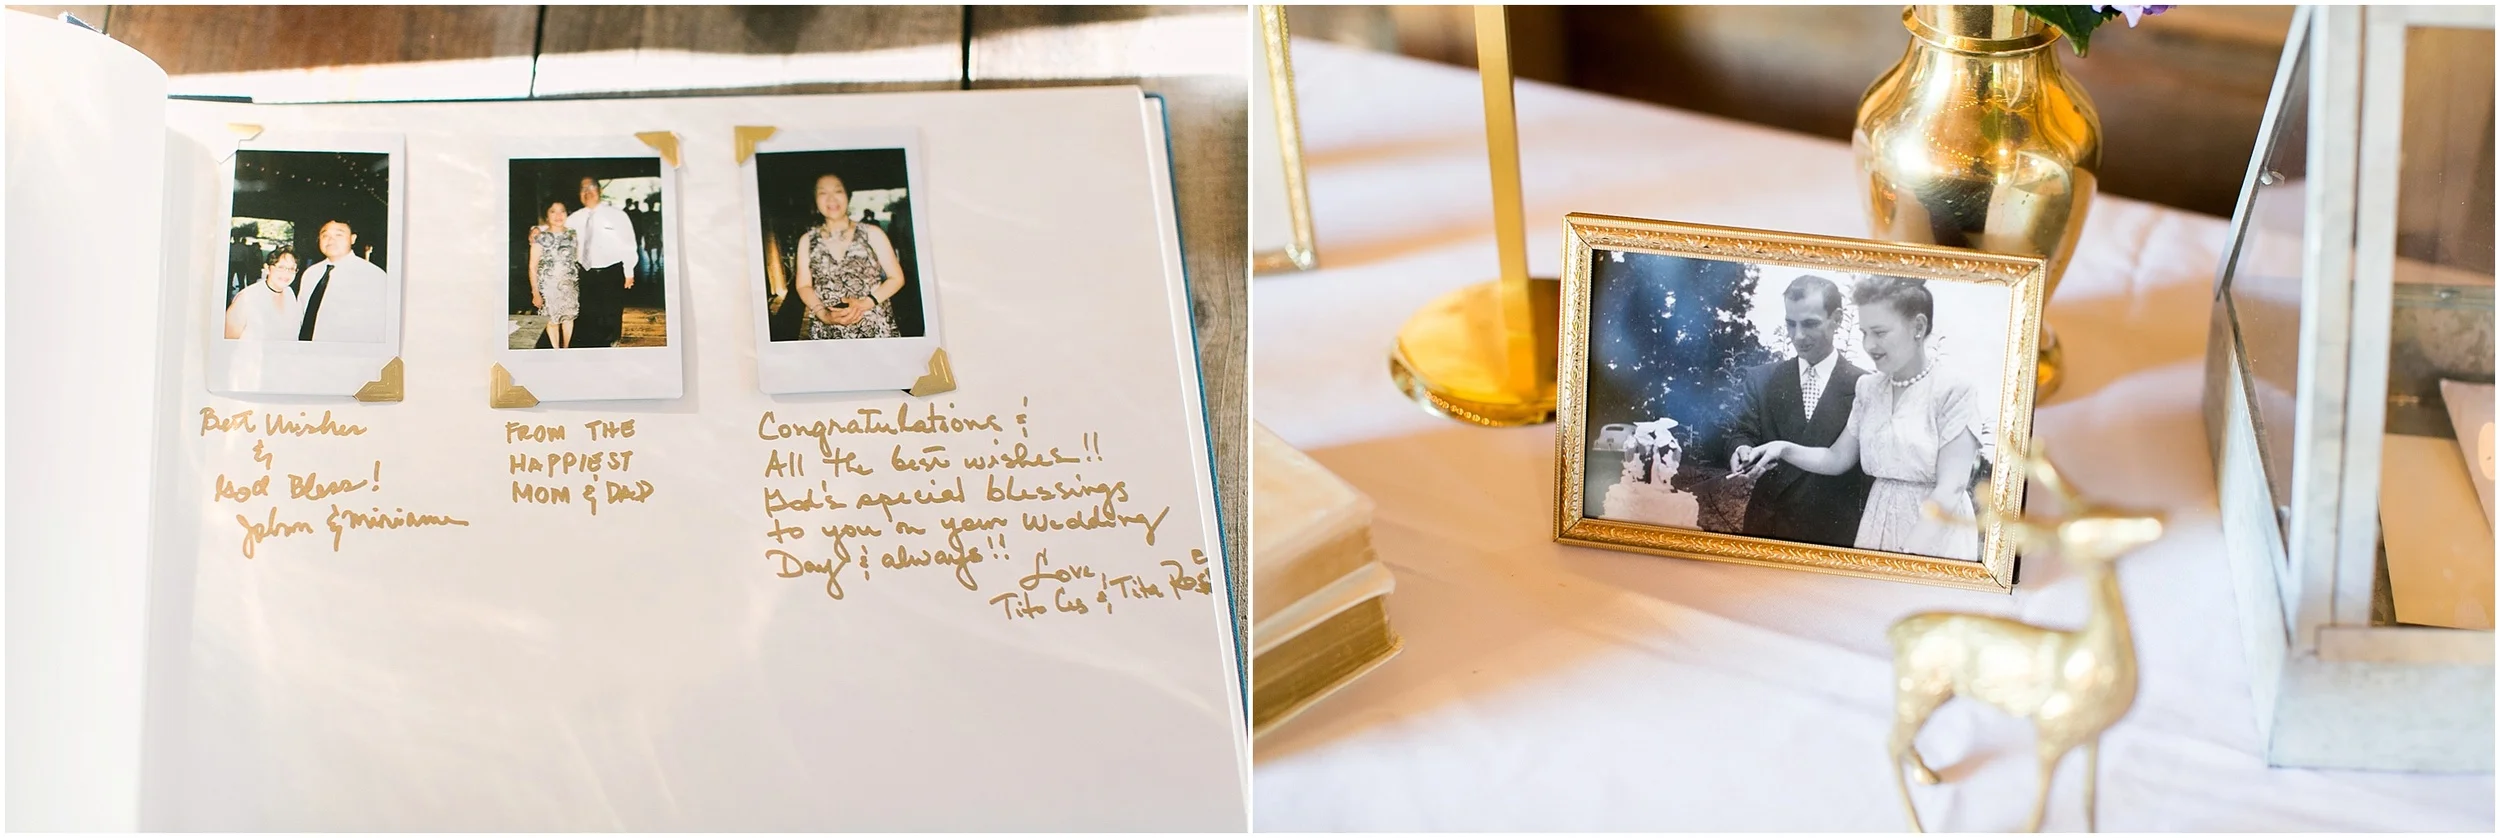 Best Wishes
&
God Bless!
John & Miriam
FROM THE
HAPPIEST
MOM & DAD
Congratulations &
All the best wishes!!
God's special blessings
to you on your Wedding
Day & always!!
Love,
Tito Ces & Tita Rose